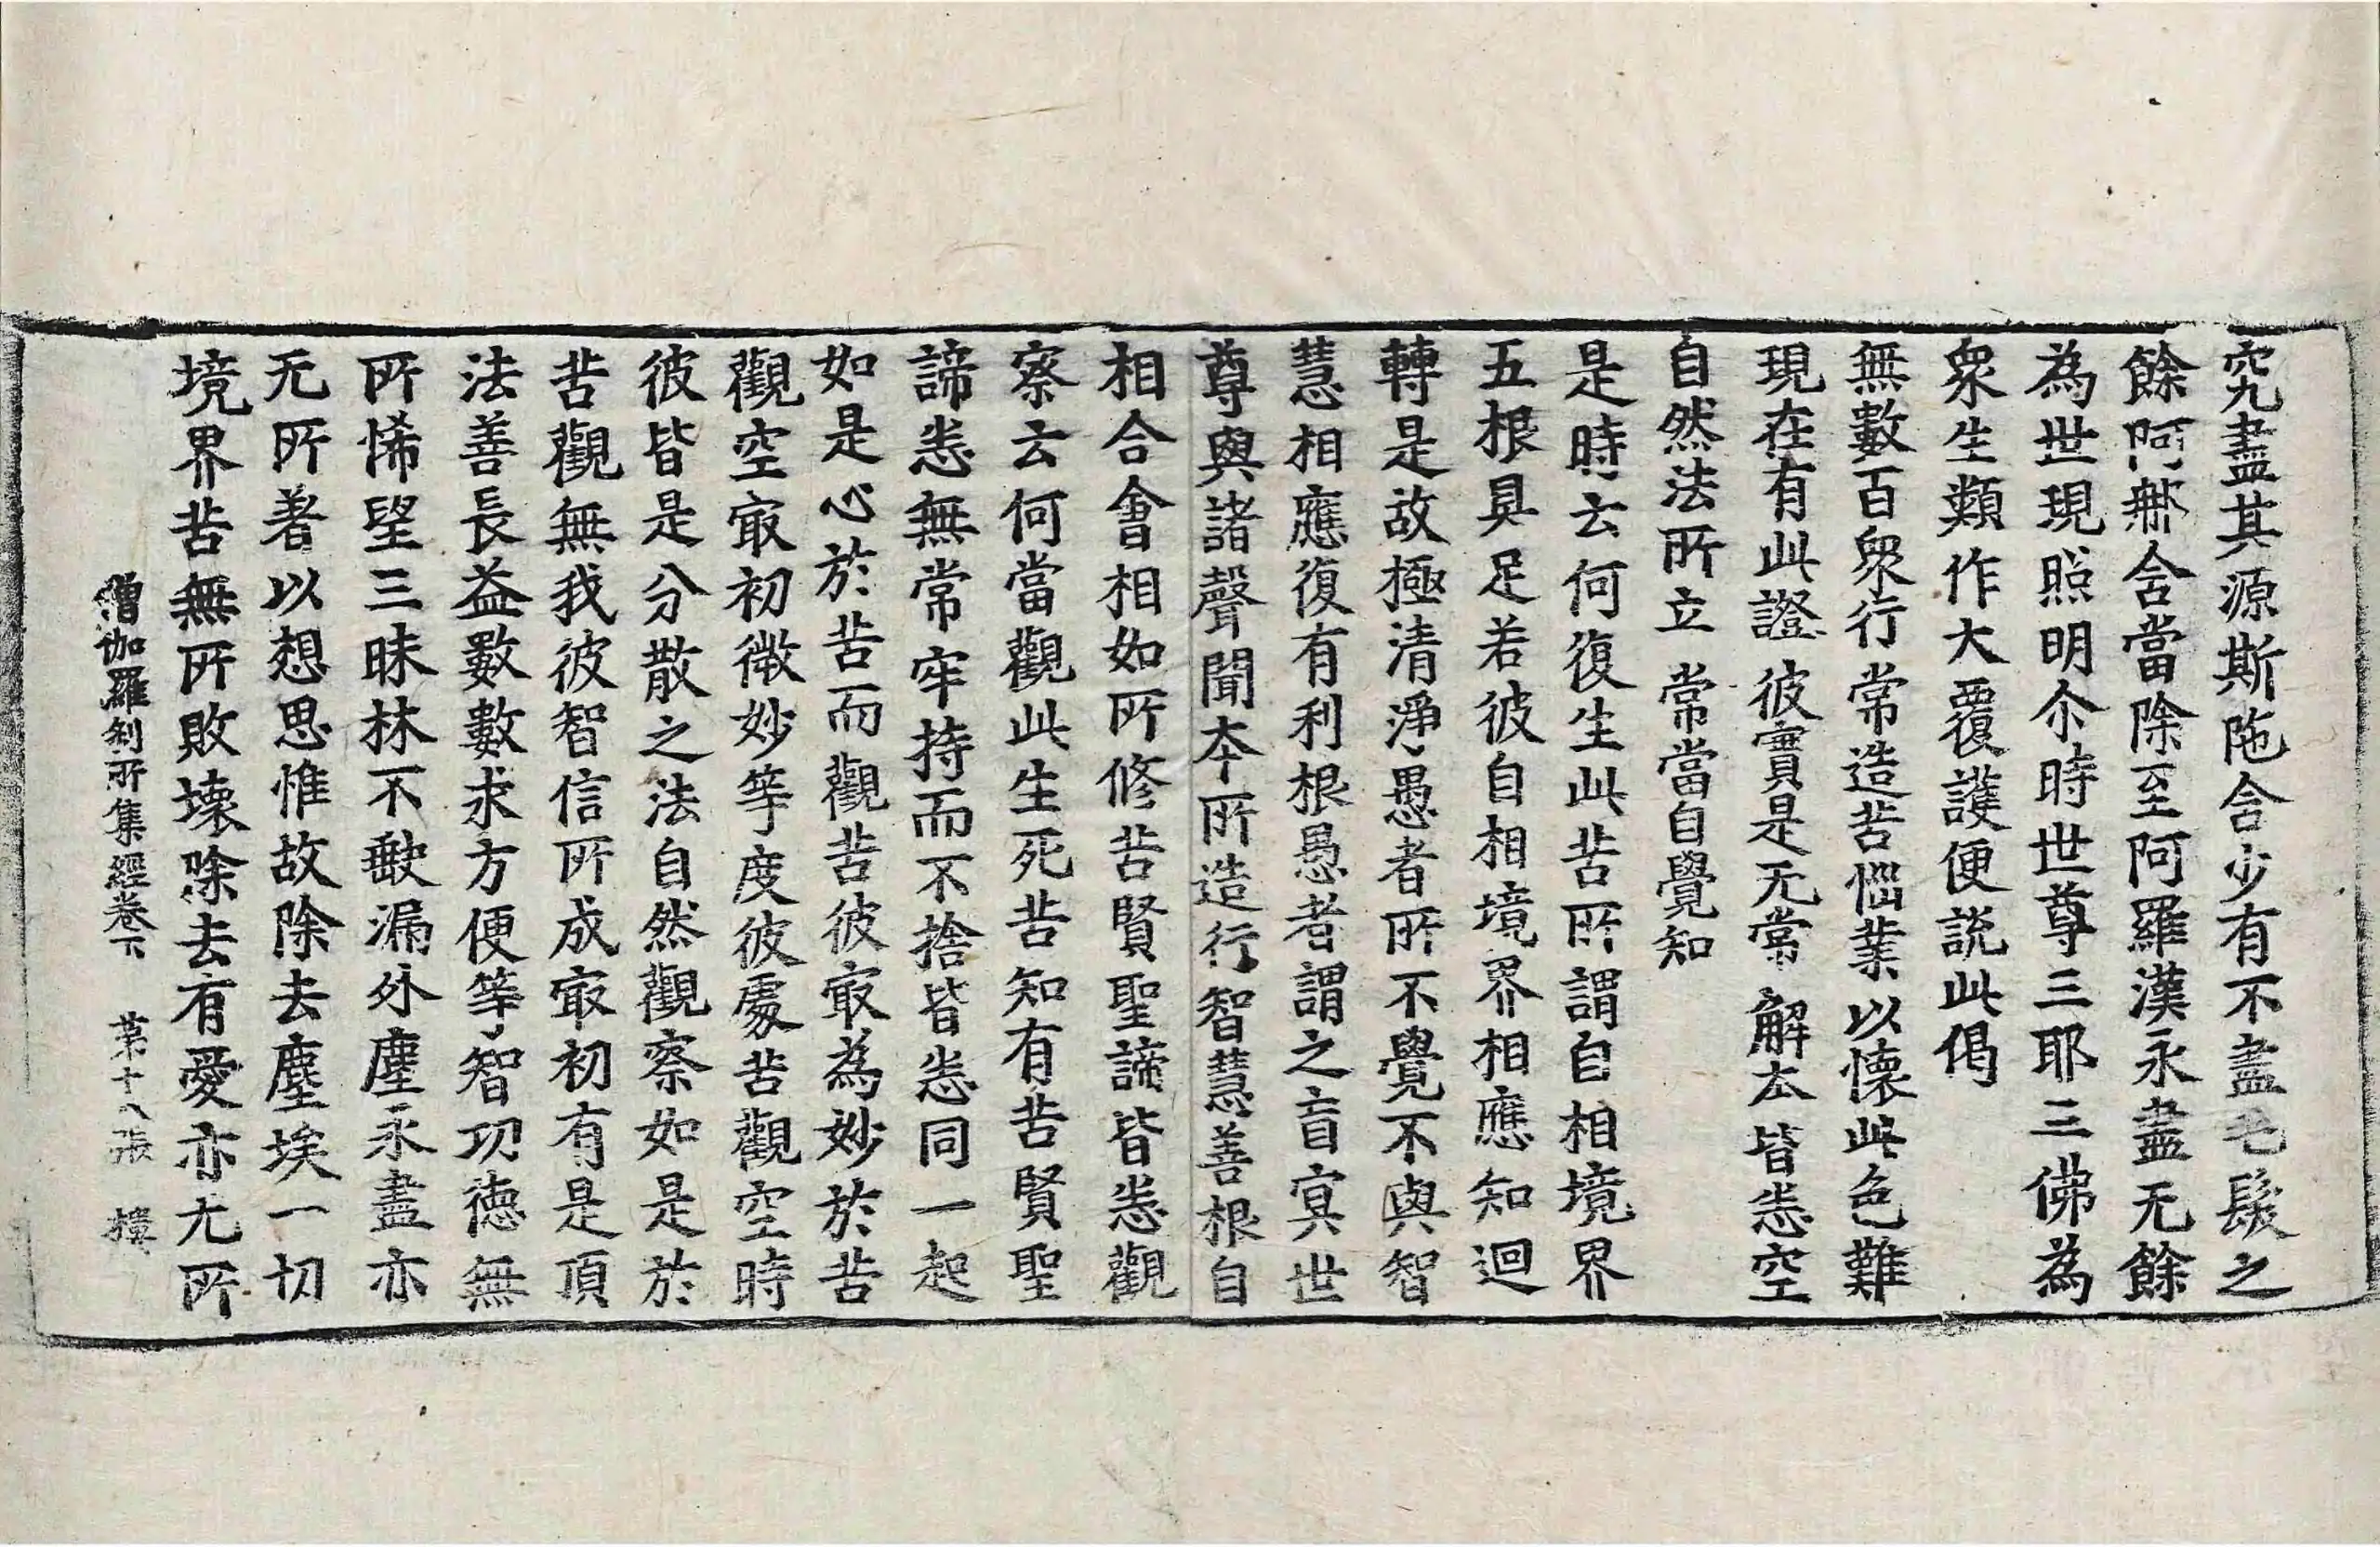 究盡其源斯陁含少有不盡毛髮之
餘阿那含當除至阿羅漢永盡无餘
為世現照明尒時世尊三耶三佛為
衆生類作大覆護便説此偈
無數百衆行 常造苦惱業 以懷此色難
現在有此證 彼實是无常 解夲皆悉空
自然法所立 常當自覺知
是時云何復生此苦所謂自相境界
五根具足若彼自相境界相應知迴
轉是故極清淨愚者所不覺不與智
慧相應復有利根愚者謂之盲冥世
尊與諸聲聞夲所造行智慧善根自
相合會相如所修苦賢聖諦皆悉觀
察云何當觀此生死苦知有苦賢聖
諦悉無常牢持而不捨皆悉同一起
如是心於苦而觀苦彼㝡為妙於苦
觀空㝡初微妙等度彼處苦觀空時
彼皆是分散之法自然觀察如是於
苦觀無我彼智信所成㝡初有是頂
法善長益數數求方便等智功德無
所悕望三昧林不㪇漏外塵永盡亦
无所著以想思惟故除去塵埃一切
境界苦無所敗壞除去有愛亦尢所
僧伽羅刹所集經卷下 第十八張 樓